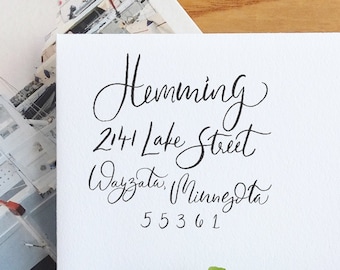 Hemming
2141 Lake Street
Wayzata, Minnesota
55361